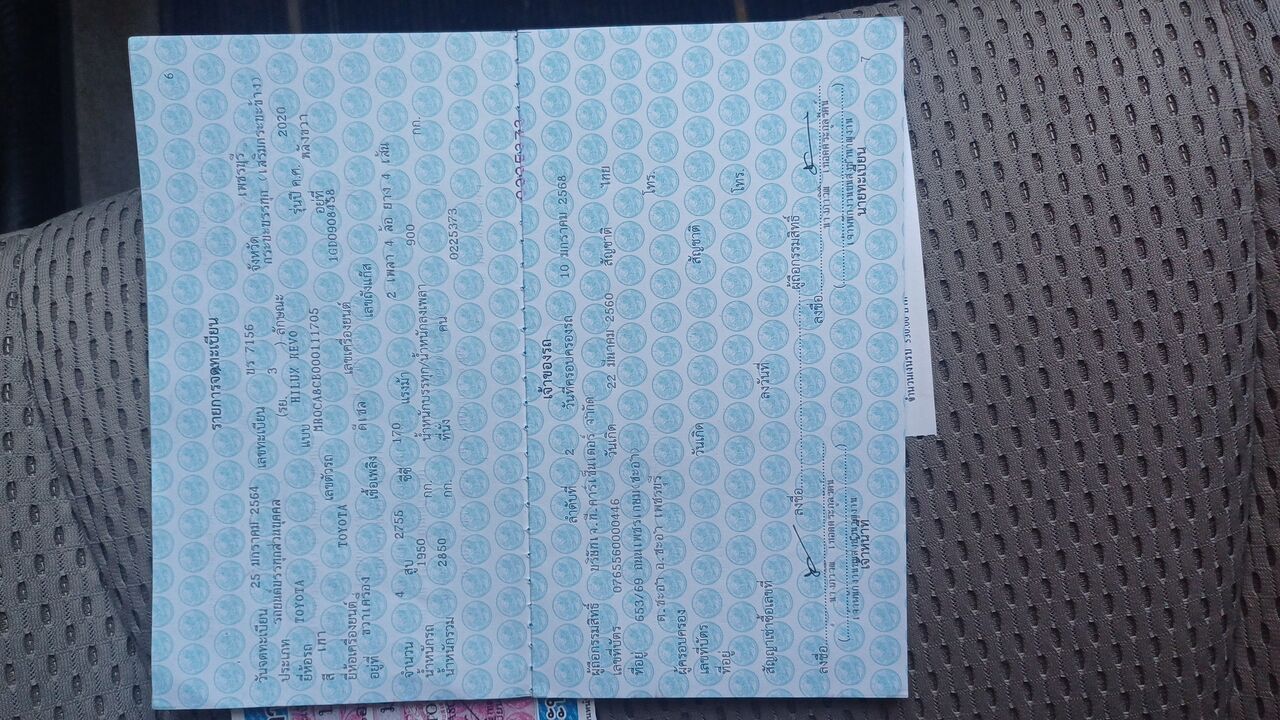 6
รายการจดทะเบียน
วันจดทะเบียน 25 มกราคม 2564 เลขทะเบียน ขร 7156 จังหวัด เพชรบุรี
ประเภท รถยนต์บรรทุกส่วนบุคคล (รย. 3 ) ลักษณะ กระบะบรรทุก / เสริมกระบะข้าง)
ยี่ห้อรถ TOYOTA แบบ HILUX REVO รุ่นปี ค.ศ. 2020
สี เทา เลขตัวรถ MR0CABCB000111705 อยู่ที่ หลังขวา
ยี่ห้อเครื่องยนต์ TOYOTA เลขเครื่องยนต์ 1GD0908458
อยู่ที่ ขวาเครื่อง เชื้อเพลิง ดีเซล เลขถังแก๊ส
จำนวน 4 สูบ 2755 ซีซี 170 แรงม้า 2 เพลา 4 ล้อ ยาง 4 เส้น
น้ำหนักรถ 1950 กก. น้ำหนักบรรทุก/น้ำหนักลงเพลา 900 กก.
น้ำหนักรวม 2850 กก. ที่นั่ง คน 0225373
เจ้าของรถ
ลำดับที่ 2 วันที่ครอบครองรถ 10 มกราคม 2568
ผู้ถือกรรมสิทธิ์ บริษัทเจ.ที.คาร์เซ็นเตอร์ จำกัด
เลขที่บัตร 0765560000446 วันเกิด 22 มีนาคม 2560 สัญชาติ ไทย
ที่อยู่ 653/69 ถนนเพชรเกษม(ชะอำ) โทร.
ต.ชะอำ อ.ชะอำ เพชรบุรี
ผู้ครอบครอง
เลขที่บัตร วันเกิด สัญชาติ
ที่อยู่ โทร.
สัญญาเช่าซื้อเลขที่ ลงวันที่ ผู้ถือกรรมสิทธิ์
ลงชื่อ ลงชื่อ ลงชื่อ
เจ้าหน้าที่ นายทะเบียน
7
จำนวนเงินรวม 530.00 บาท